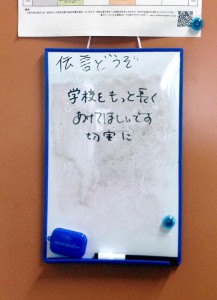 伝言どうぞ
学校をもっと長く
あけてほしいです
切実に